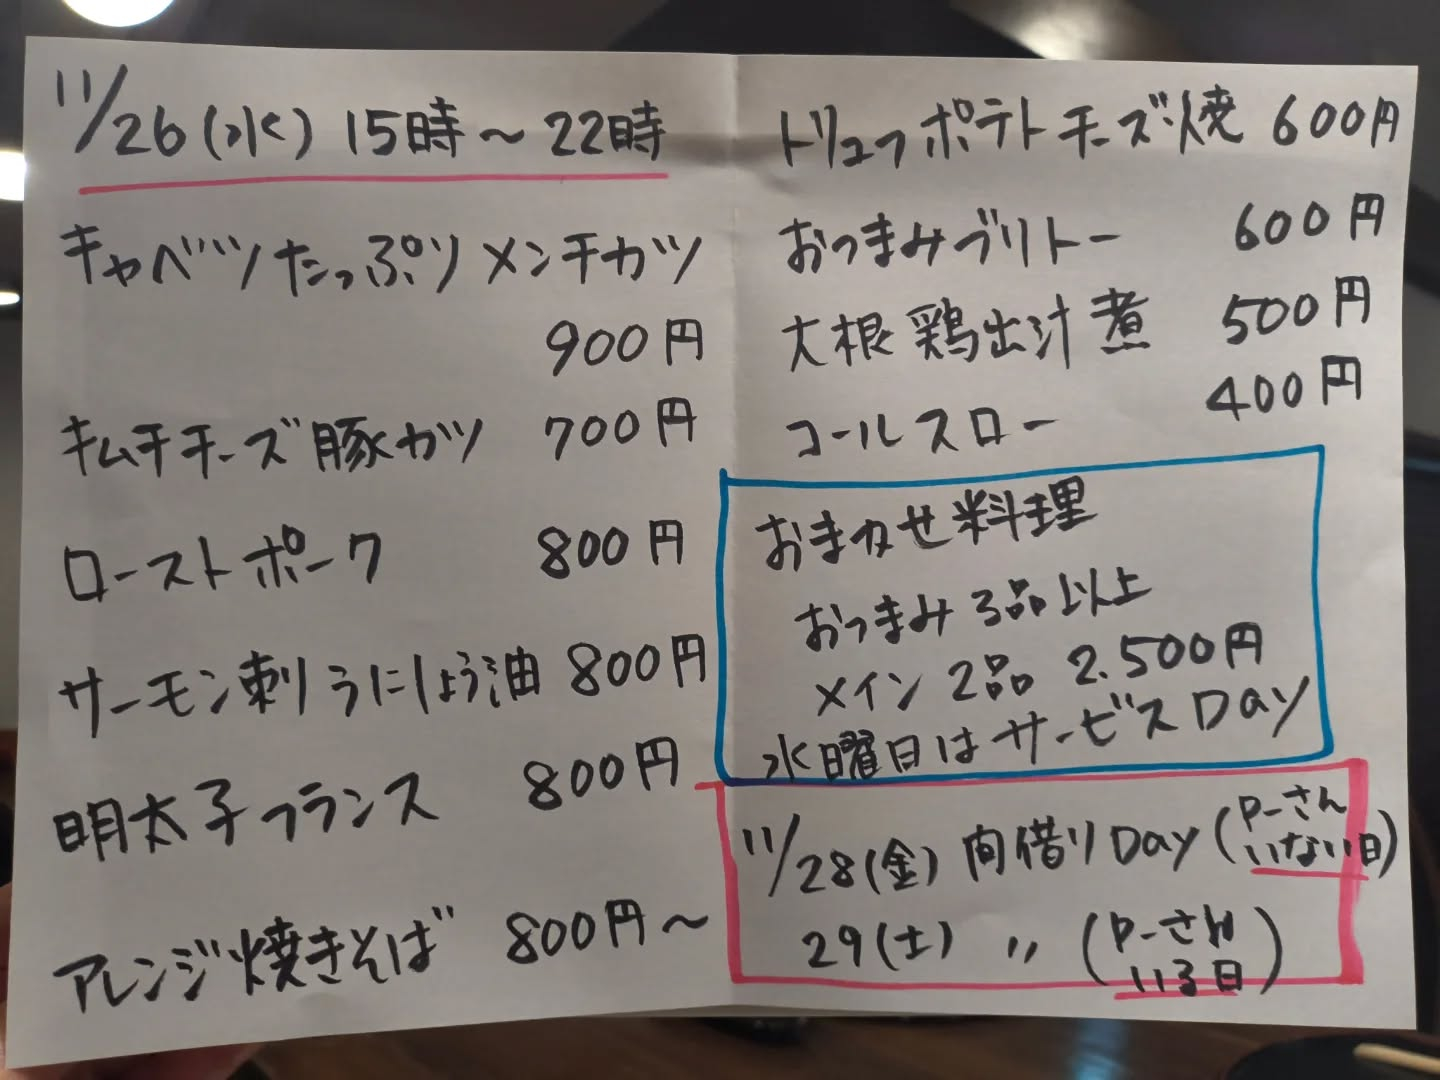 11/26(水) 15時～22時
キャベツたっぷりメンチカツ
900円
キムチチーズ豚カツ 700円
ローストポーク 800円
サーモン刺 うにしょう油 800円
明太子フランス 800円
アレンジ焼きそば 800円～
トリュフポテトチーズ焼 600円
おつまみブリトー 600円
大根鶏出汁煮 500円
コールスロー 400円
おまかせ料理
おつまみ3品以上
メイン2品 2.500円
水曜日はサービスDay
11/28(金) 間借りDay (P-さん
いない日)
29(土) 〃 (P-さん
いる日)